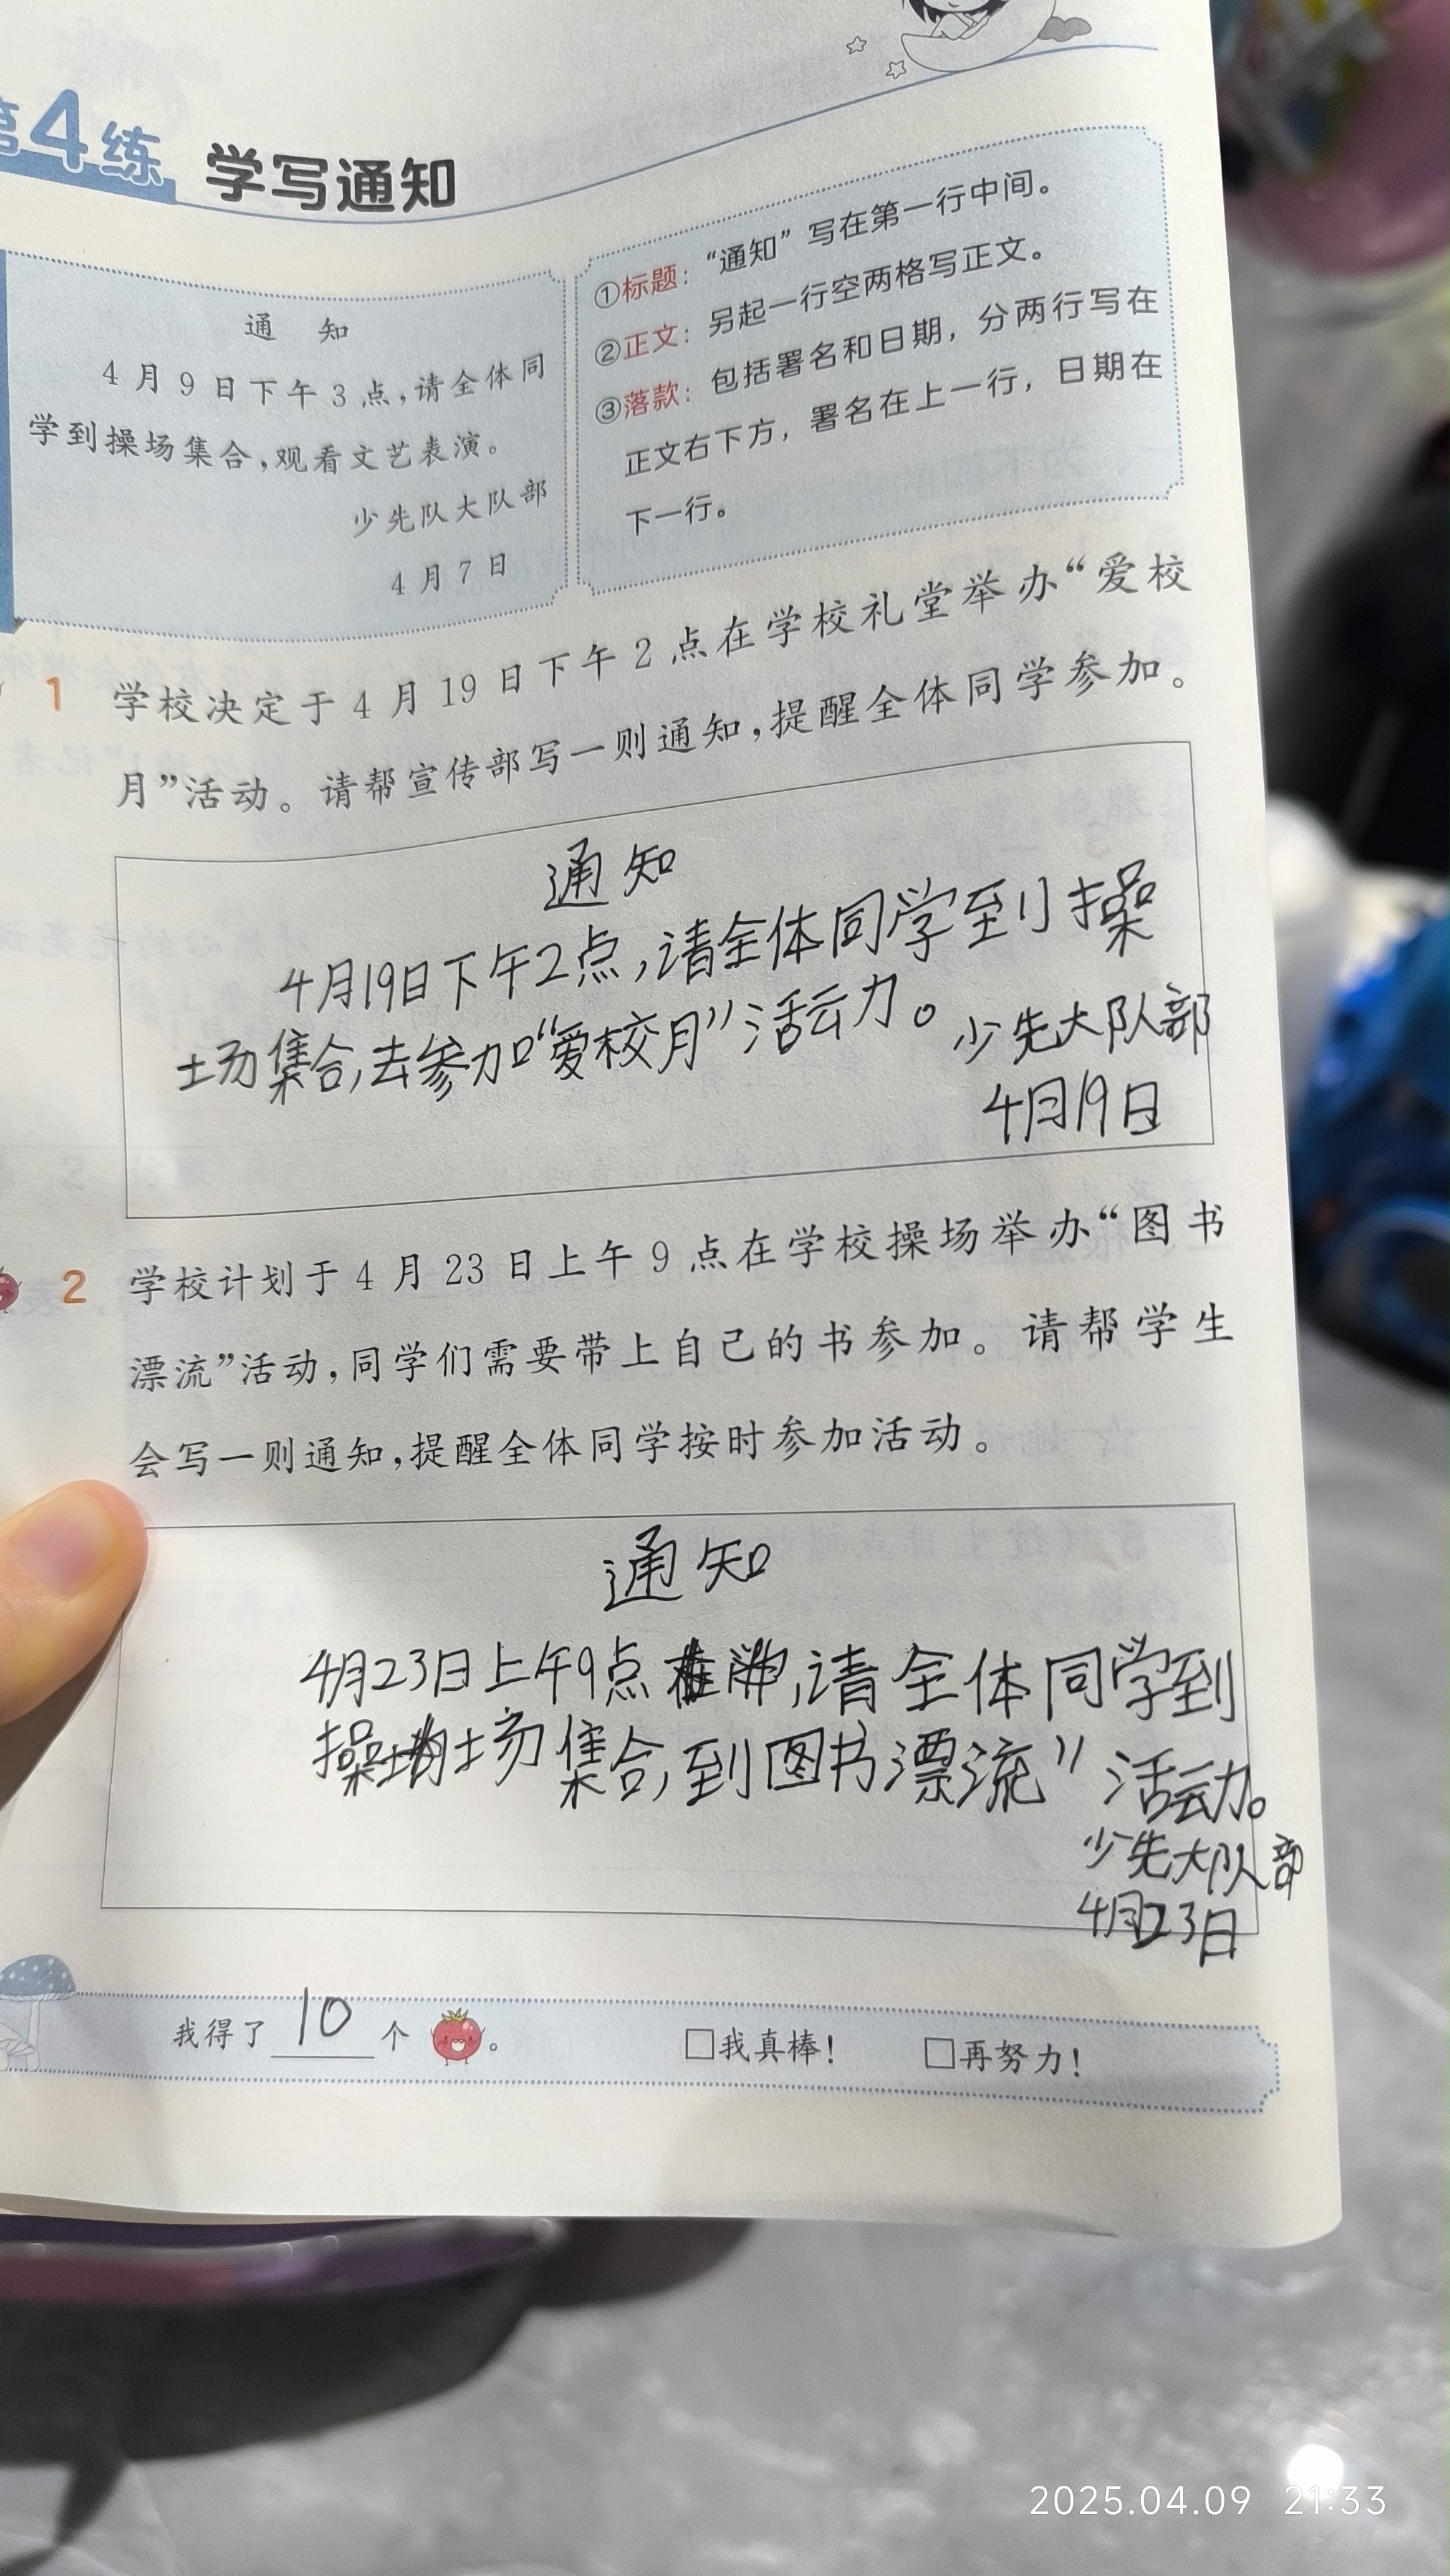 第4练 学写通知
通 知
4月9日下午3点,请全体同
学到操场集合,观看文艺表演。
少先队大队部
4月7日
①标题:“通知”写在第一行中间。
②正文:另起一行空两格写正文。
③落款:包括署名和日期,分两行写在
正文右下方,署名在上一行,日期在
下一行。
1 学校决定于4月19日下午2点在学校礼堂举办“爱校
月”活动。请帮宣传部写一则通知,提醒全体同学参加。
通知
4月19日下午2点,请全体同学到操
场集合,去参加“爱校月”活动。
少先大队部
4月19日
2 学校计划于4月23日上午9点在学校操场举办“图书
漂流”活动,同学们需要带上自己的书参加。请帮学生
会写一则通知,提醒全体同学按时参加活动。
通知
4月23日上午9点,请全体同学到
操场集合,到图书漂流”活动。
少先大队部
4月23日
我得了 10 个。 □我真棒! □再努力!
2025.04.09 21:33